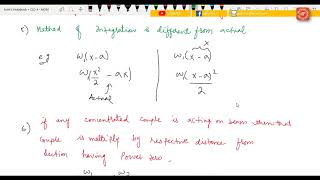 5) Method of Integration is different from actual
e.g w₁(x-a) w₁(x-a) x
w₁(x²/2 - ax) w₁(x-a)²/2
Actual
6) if any concentrated couple is acting on beam then that
couple is multiply by respective distance from
section having Power zero.
w₁ w₂